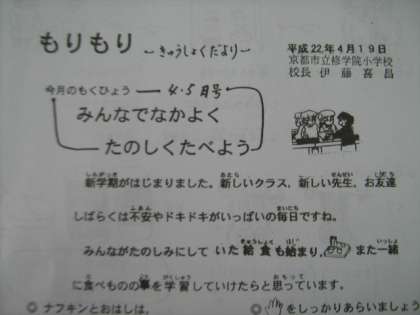 もりもり ～きゅうしょくだより～
平成22年4月19日
京都市立修学院小学校
校長 伊藤喜昌
今月のもくひょう 4・5月号
みんなでなかよく
たのしくたべよう
新学期がはじまりました。新しいクラス、新しい先生、お友達
しばらくは不安やドキドキがいっぱいの毎日ですね。
みんながたのしみにしていた給食も始まり、また一緒
に食べものの事を学習していけたらと思っています。
◎ナフキンとおはしは、
◎ をしっかりあらいましょう